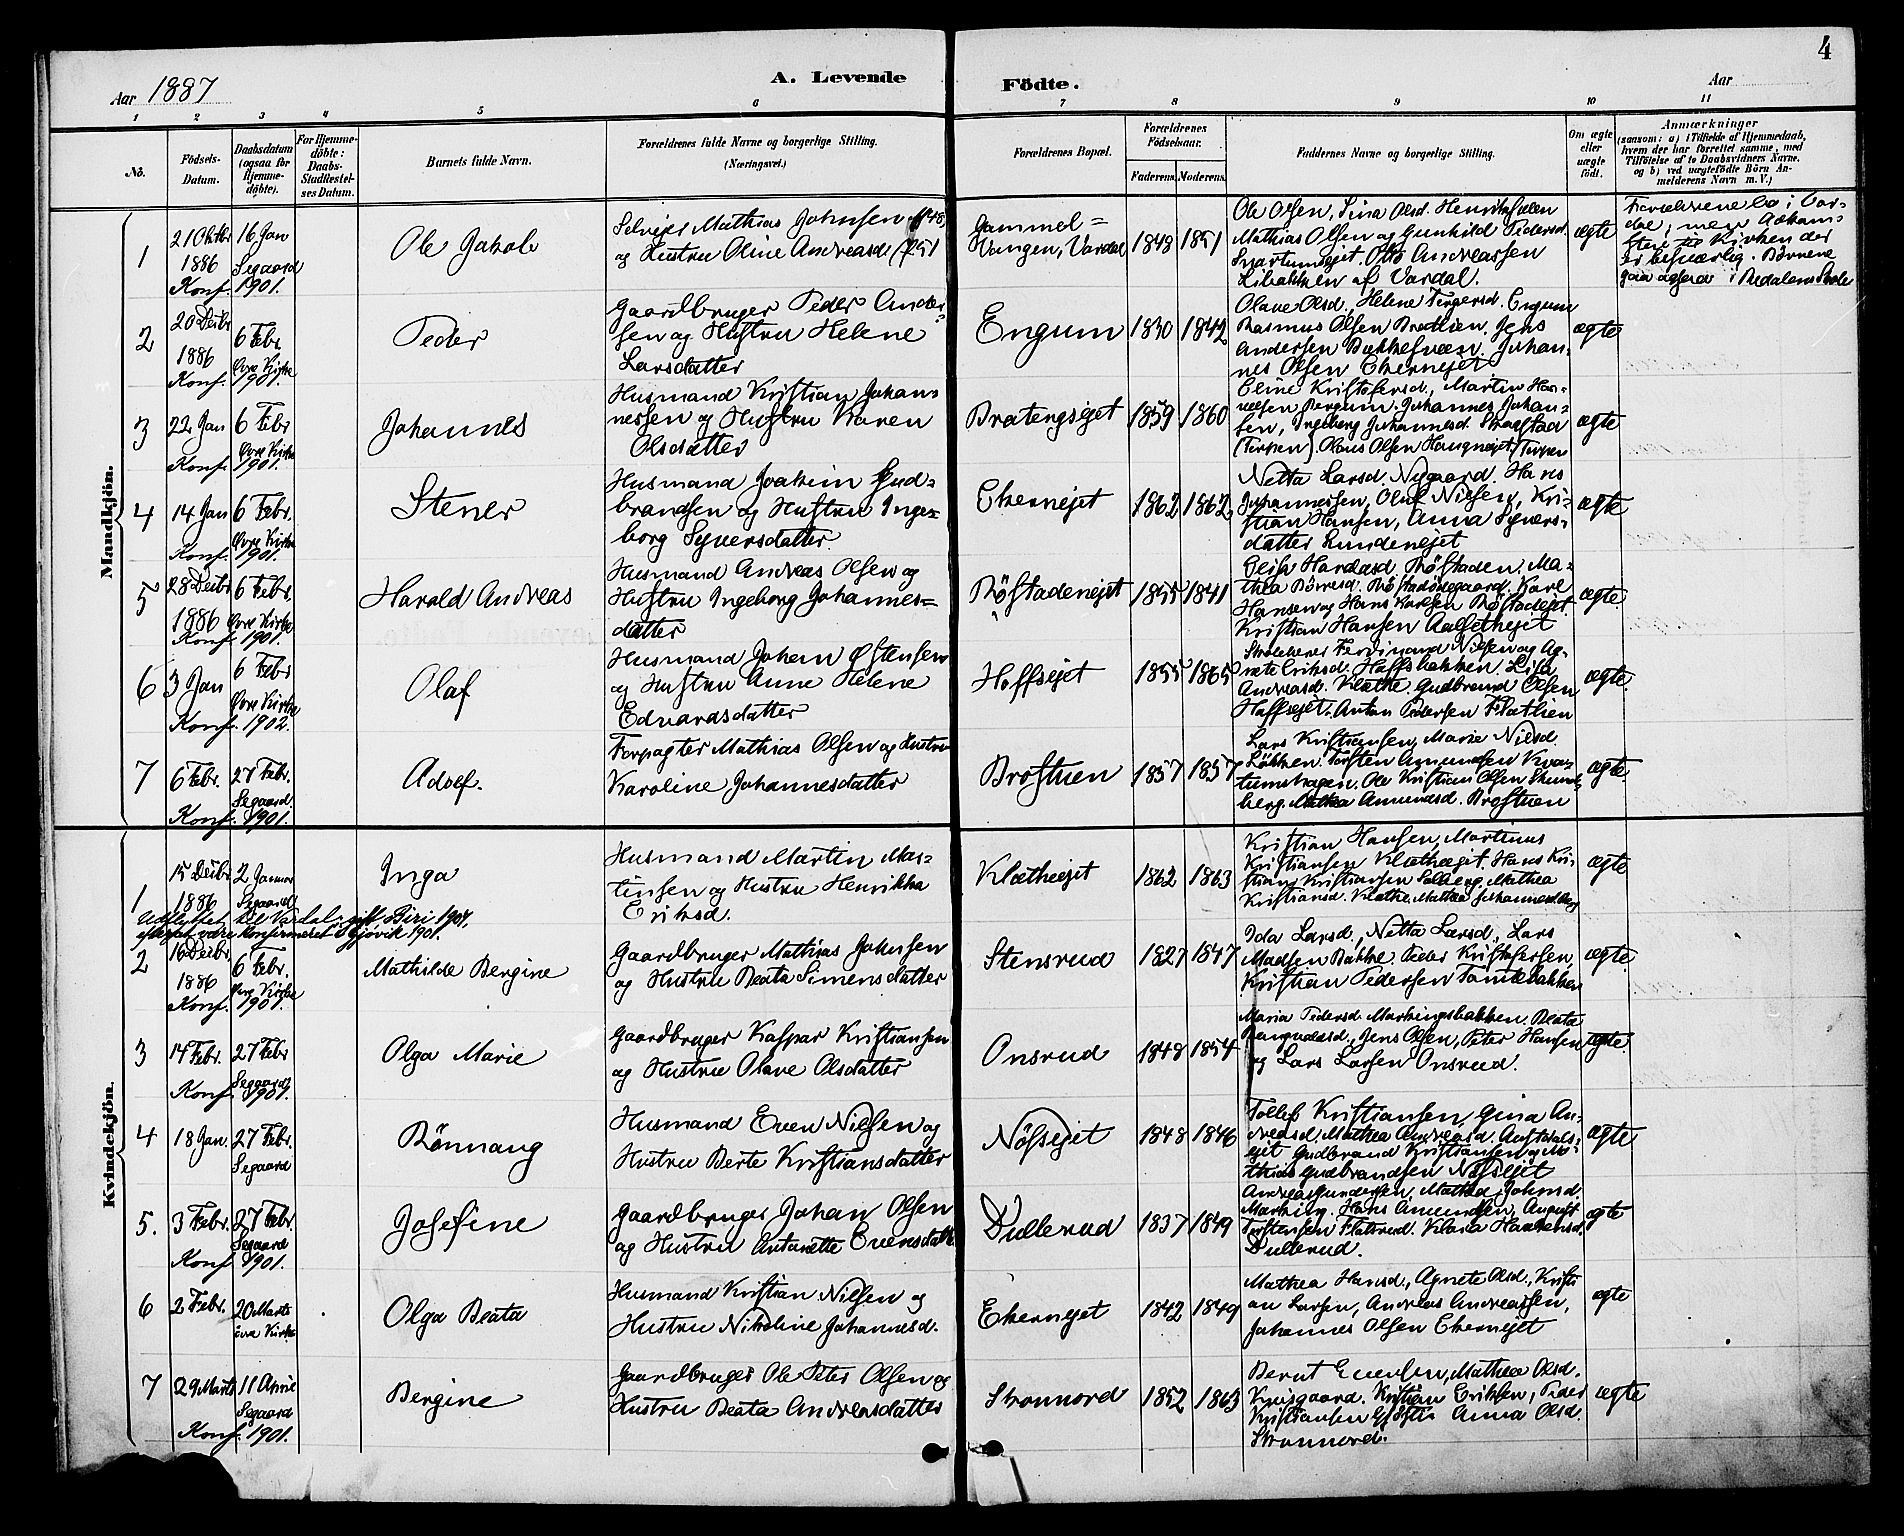 4
Aar 1887
A. Levende
Födte.
Aar
1 2 3 4 5 6 7 8 9 10 11
No.
Födsels-
Datum.
Daabsdatum
(ogsaa for
Hjemme-
döbte).
For Hjemme-
döbte:
Daabs-
Stadfæstel-
ses Datum.
Barnets fulde Navn.
Forældrenes fulde Navne og borgerlige Stilling.
(Næringsvei.)
Forældrenes Bopæl.
Forældrenes
Födselsaar.
Faderens. Moderens.
Faddernes Navne og borgerlige Stilling.
Om ægte
eller
uægte
födt.
Anmærkninger
(saasom: a) i Tilfælde af Hjemmedaab,
hvem der har forrettet samme, med
Tilföielse af to Daabsvidners Navne.
og b) ved uægtefödte Börn An-
melderens Navn m. V.)
Mandkjön.
1
21 Oktbr
1886
Konf.
16 Jan
Segaard
1901.
Ole Jakob
Selveier Mathias Johnsen 1848,
og Hustru Oline Andreasd. 1851
Gammel=
Vangen, Vardal
1848 1851
Ole Olsen, Sina Olsd.
Mathias Olsen og Gunhild Pedersd.
Svartungejet. Otto Andreassen
Libakken af Vardal.
ægte
Forældrene bo i Var-
dal, men Adkom-
sten til Kirken der
er besværlig. Børnene
gaa ogsaa i Redalens Skole
2
20 Decbr
1886
Konf.
6 Febr.
Øvre Kirke
1901.
Peder
Gaardbruger Peder Ander-
sen og Hustru Helene
Larsdatter
Engum
1830 1842
Olave Olsd., Helene Torgersd. Engum
Rasmus Olsen Bratlien. Jens
Andersen Bækkesvæen. Johan-
nes Olsen Ekernejet
ægte
3
22 Jan
Konf.
6 Febr
Øvre Kirke
1901.
Johannes
Husmand Kristian Johan-
nessen og Hustru Karen
Olsdatter
Bratengsejet
1859 1860
Eline Kristofersd., Martin Han-
Bergum. Johannes Johan-
sen, Ingeborg Johannesd. Skaastad
(Torpen). Olaus Olsen Haugnejet (Torpen
ægte
4
14 Jan
Konf.
6 Febr.
Øvre Kirke
1901.
Stener
Husmand Joakim Gud-
brandsen og Hustru Inge-
borg Syversdatter
Ekernejet
1862 1862
Netta Larsd. Nygaard. Hans
Johannessen, Oluf Nielsen, Kri-
stian Hansen, Anna Syvers-
datter Lundenejet
ægte
5
28 Decbr
1886
Konf.
6 Febr.
Øvre Kirke
1901.
Harald Andreas
Husmand Andreas Olsen og
Hustru Ingeborg Johannes=
datter
Røstadenejet
1855 1841
Røstaden. Ma-
thea Børresd. Røstadødegaard. Karl
Hansen og Hans Karlsen Røstadejet
Kristian Hansen
ægte
6
3 Jan
Konf.
6 Febr
Øvre Kirke
1902.
Olaf
Husmand Johan Østensen
og Hustru Anne Helene
Edvardsdatter
Hoffsejet
1855 1865
Ferdinand Nielsen og Ag-
nete Eriksd. Hoffsbakken. Lisa
Andreasd. Klæthe. Gudbrand Olsen
Hoffsejet. Anton Pedersen Flatlien
ægte.
7
6 Febr.
Konf.
27 Febr.
Segaard.
1901.
Adolf.
Forpagter Mathias Olsen og Hustru
Karoline Johannesdatter
Brostuen
1857 1857
Lars Kristiansen, Maria Nilsd.
Løkken. Torsten Amundsen Kva-
tumshagen. Ole Kristian Olsen Skund-
berg. Mathea Amundsd. Brostuen
ægte
Kvindekjön.
1
15 Decbr
1886
2 Januar
Segaard
Udflyttet til Vardal, gift Biri 1907,
efter at være konfirmeret i Gjøvik 1901.
Inga
Husmand Martin Mar-
tinsen og Hustru Henrikka
Eriksd.
Klæthejet
1862 1863
Kristian Hansen, Martinus
Kristiansen Klæthejet. Hans Kri-
stian Kristiansen Solberg. Mathea
Kristiansd. Klæthe. Mathea Johannesd. Berg
ægte
2
16 Decbr.
1886
Konf.
6 Febr.
Øvre Kirke
1901.
Mathilde Bergine
Gaardbruger Mathias Johnsen
og Hustru Beata Simensdatter
Stensrud
1827 1847
Ida Larsd., Netta Larsd., Lars
Madsen Bakke. Peder Kristofersen,
Kristian Pedersen
ægte.
3
14 Febr.
Konf.
27 Febr
Segaard
1901.
Olga Marie
Gaardbruger Kaspar Kristiansen
og Hustru Olave Olsdatter
Onsrud
1848 1854
Maria Pedersd. Beata
Jens Olsen, Peter Hansen
og Lars Larsen Onsrud.
ægte.
4
18 Jan.
27 Febr.
Segaard
Rønnaug
Husmand Even Nilsen og
Hustru Berte Kristiansdatter
Nøssejet
1848 1846
Tollef Kristiansen, Gina An-
dreasd. Mathea Andreasd.
ejet Gudbrand Kristiansen og Ma-
thias Gudbrandsen Nøssejet
ægte
5.
3 Febr.
Konf.
27 Febr.
Segaard
1901.
Josefine
Gaardbruger Johan Olsen
og Hustru Antonette Evensdatt.
Dullerud
1837 1849
Andreas Gundersen, Mathea Johnsd.
Hans Amundsen, August
Torstensen Flatrud. Klara Haakensd.
Dullerud.
ægte
6
2 Febr.
20 Marts
Øvre Kirke
Olga Beata
Husmand Kristian Nilsen og
Hustru Nikoline Johannesd.
Ekernejet
1842 1849
Mathea Hansd., Agnete Olsd., Kristi
an Larsen, Andreas Andreassen,
Johannes Olsen Ekernejet
ægte
7
29 Marts
Konf.
11 April
Segaard
1901.
Bergine
Gaardbruger Ole Peter Olsen og
Hustru Beata Andreasdatter
Skonnord
1852 1863
Bernt Evensen, Mathea Olsd.
Kristian Eriksen, Peder
Kristiansen Anna Olsd.
Skonnord.
ægte